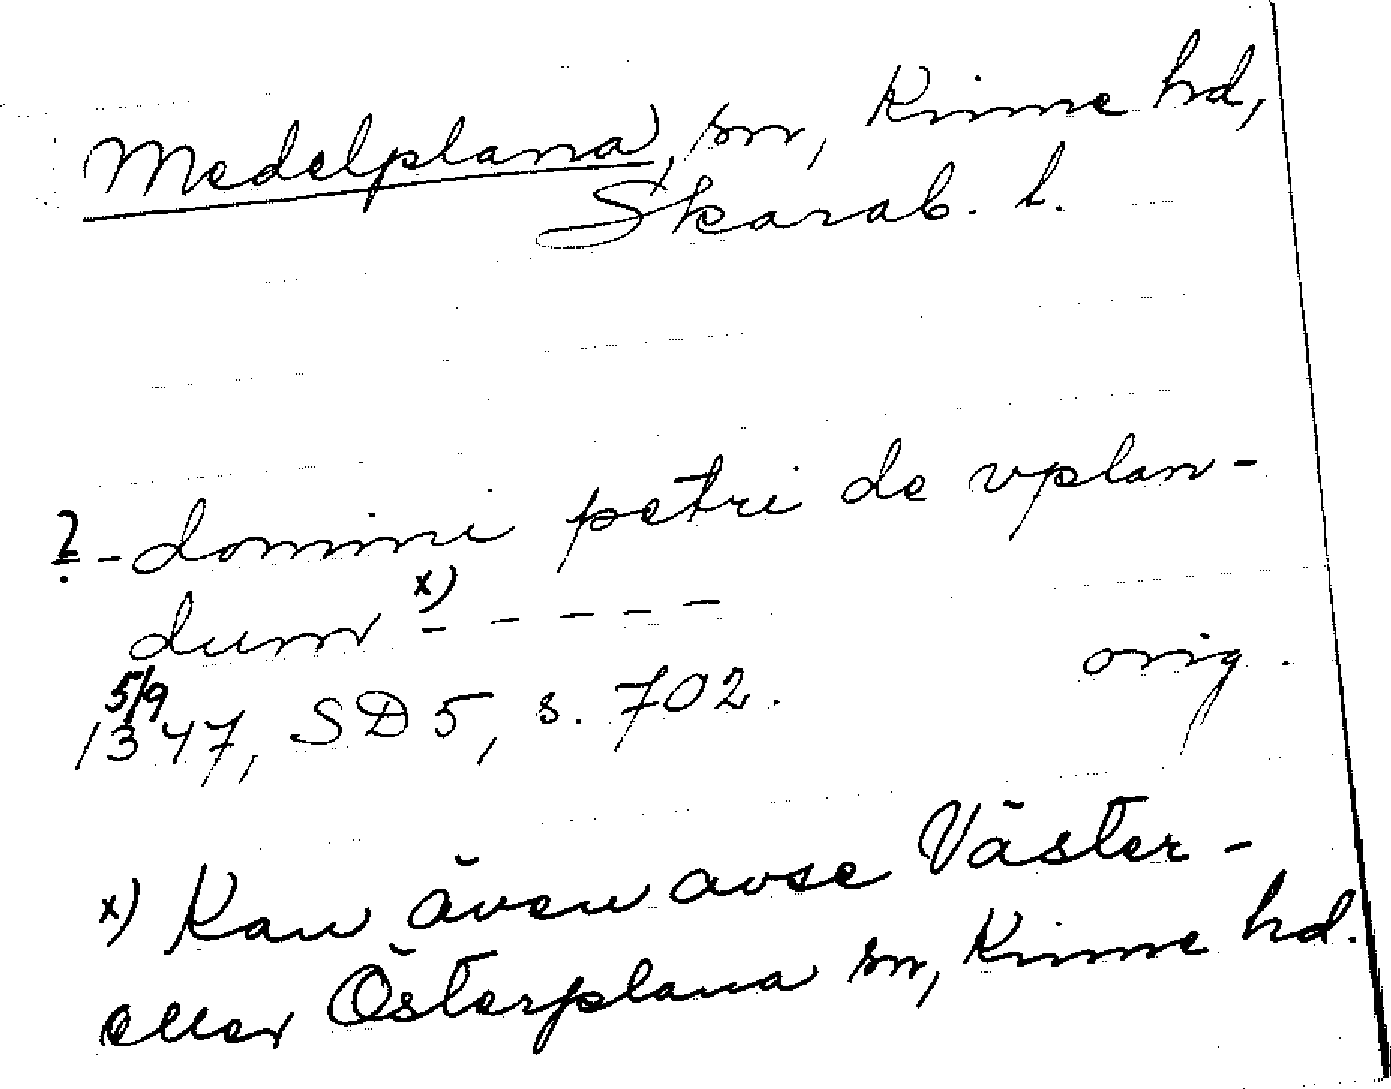 Medelplana, sn, Kinne hd,
Skarab. l.
? - domini petri de vplan-
dum x) - - - - -
5/9 orig.
1347, SD5, s. 702.
x) Kan även avse Väster-
eller Österplana sn, Kinne hd.